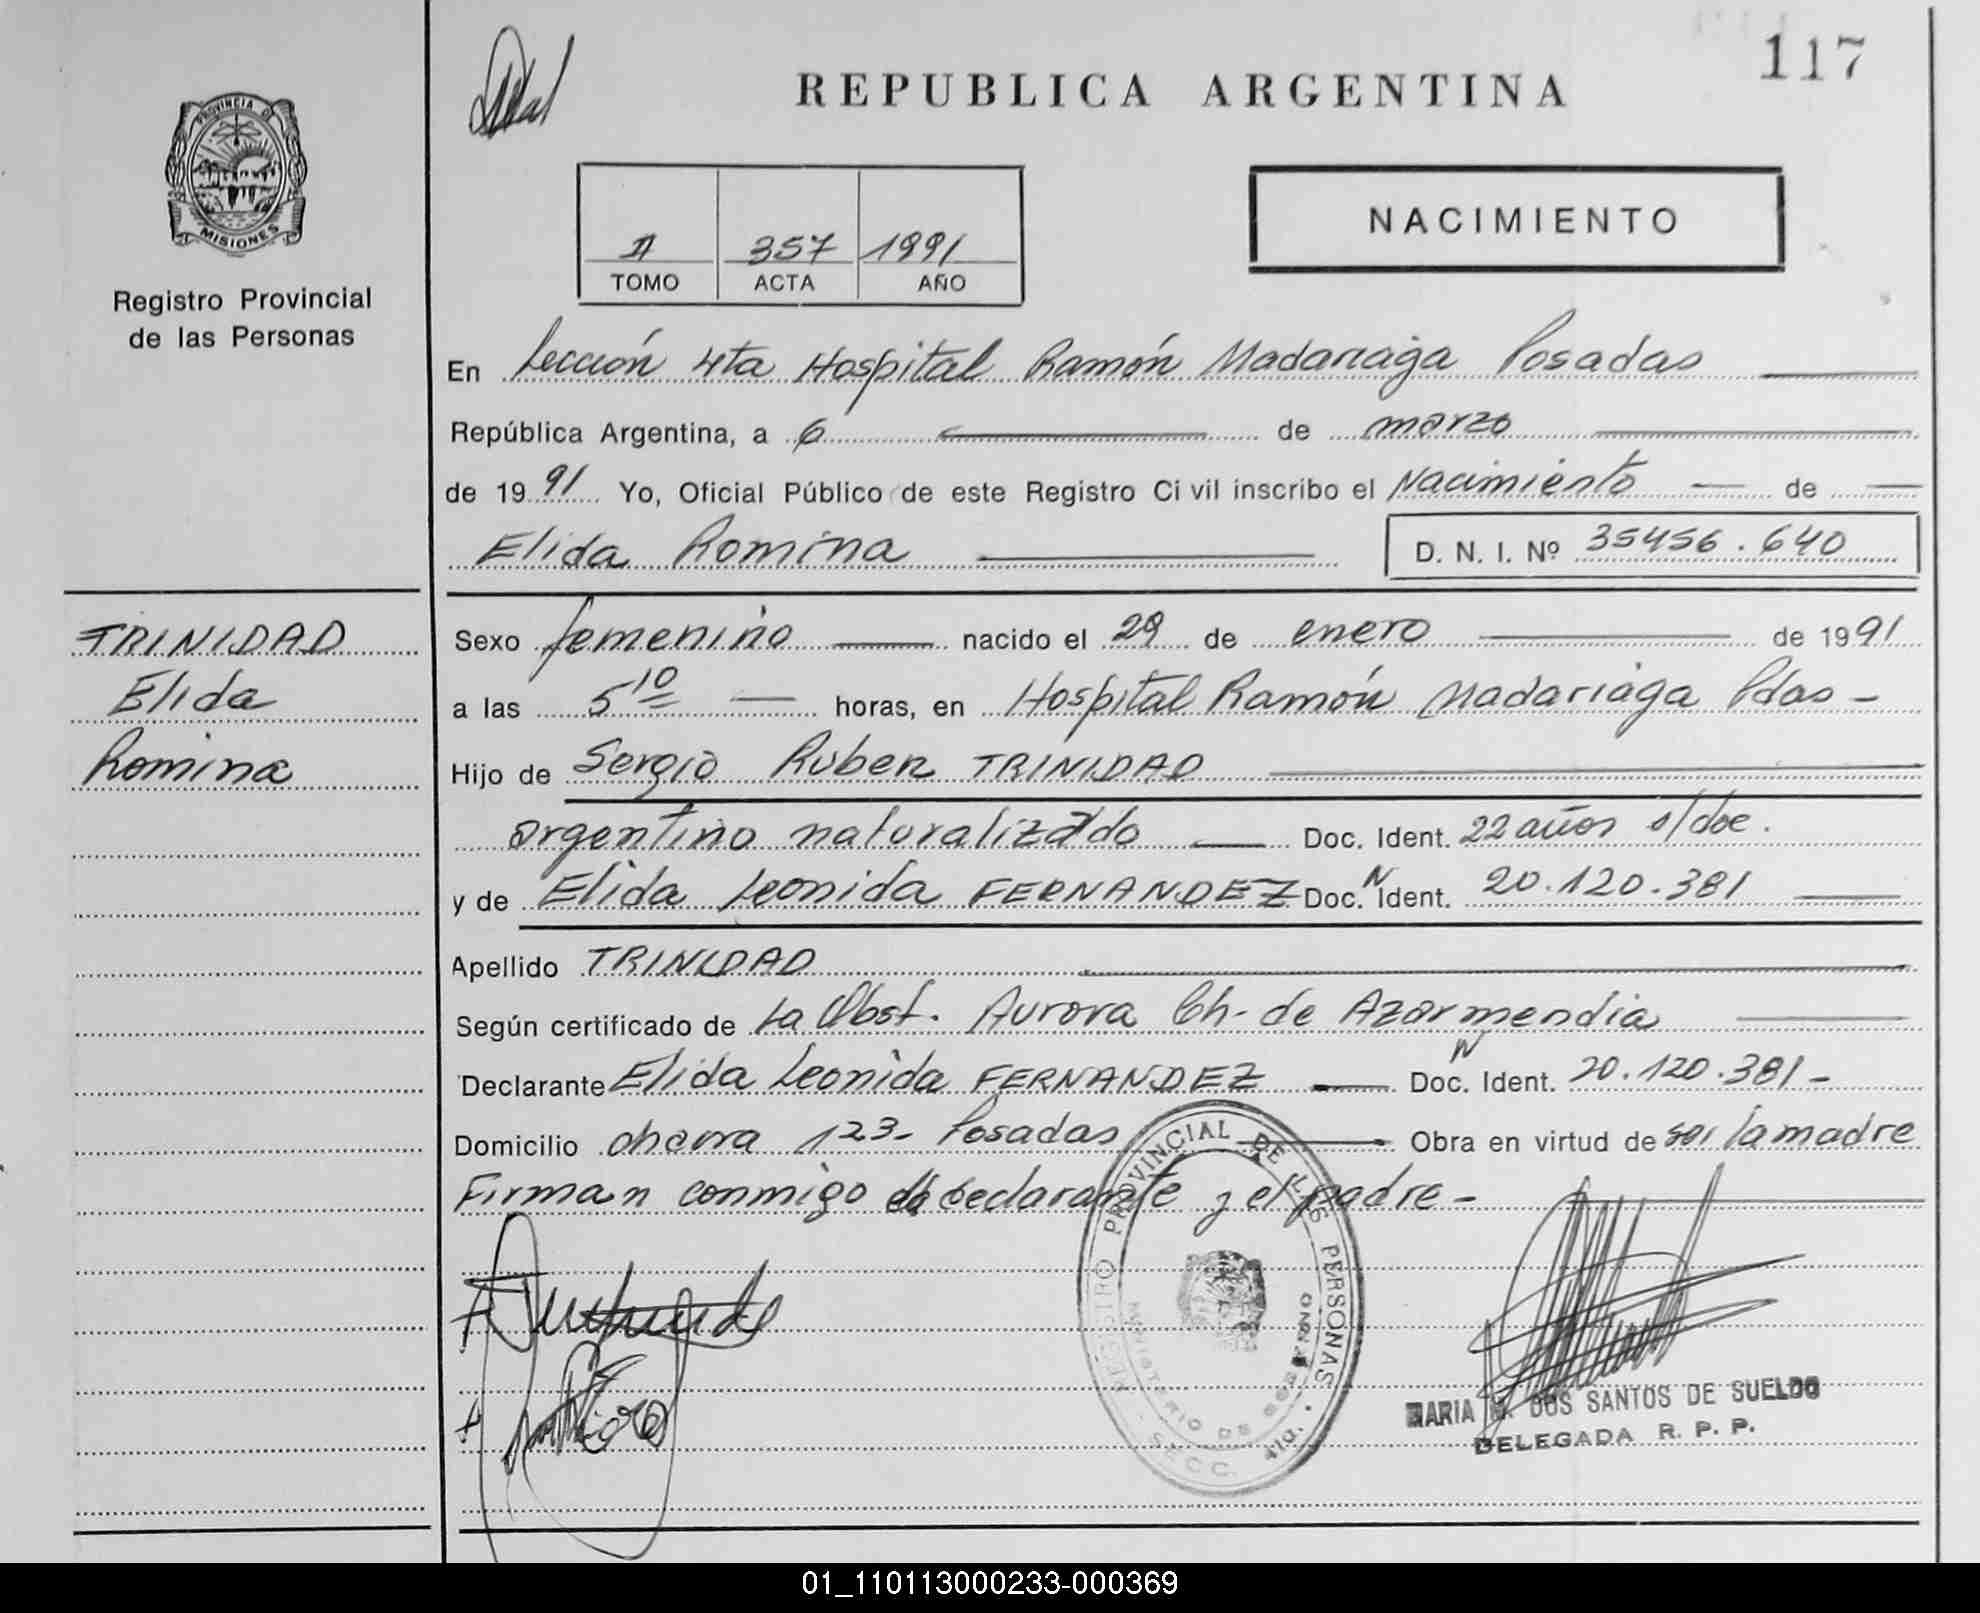 117
REPUBLICA ARGENTINA
PROVINCIA DE
MISIONES
Registro Provincial
de las Personas
II 357 1991
TOMO ACTA AÑO
NACIMIENTO
En Sección 4ta Hospital Ramón Madariaga Posadas
República Argentina, a 6 de marzo
de 1991 Yo, Oficial Público de este Registro Civil inscribo el Nacimiento de
Elida Romina D. N. I. Nº 35456.640
TRINIDAD
Elida
Romina
Sexo femenino nacido el 29 de enero de 1991
a las 5 10 horas, en Hospital Ramón Madariaga Pdas -
Hijo de Sergio Ruben TRINIDAD
argentino naturalizado Doc. Ident. 22 años s/doc.
y de Elida Leonida FERNANDEZ Doc. N Ident. 20.120.381
Apellido TRINIDAD
Según certificado de La Obst. Aurora Ch- de Azarmendia
Declarante Elida Leonida FERNANDEZ Doc. N Ident. 20.120.381-
Domicilio chacra 123- Posadas Obra en virtud de ser la madre
Firman conmigo la declarante y el padre -
REGISTRO PROVINCIAL DE LAS PERSONAS
MINISTERIO DE GOBIERNO
SECC. 4ta.
MARIA DOS SANTOS DE SUELDO
DELEGADA R. P. P.
01_110113000233-000369